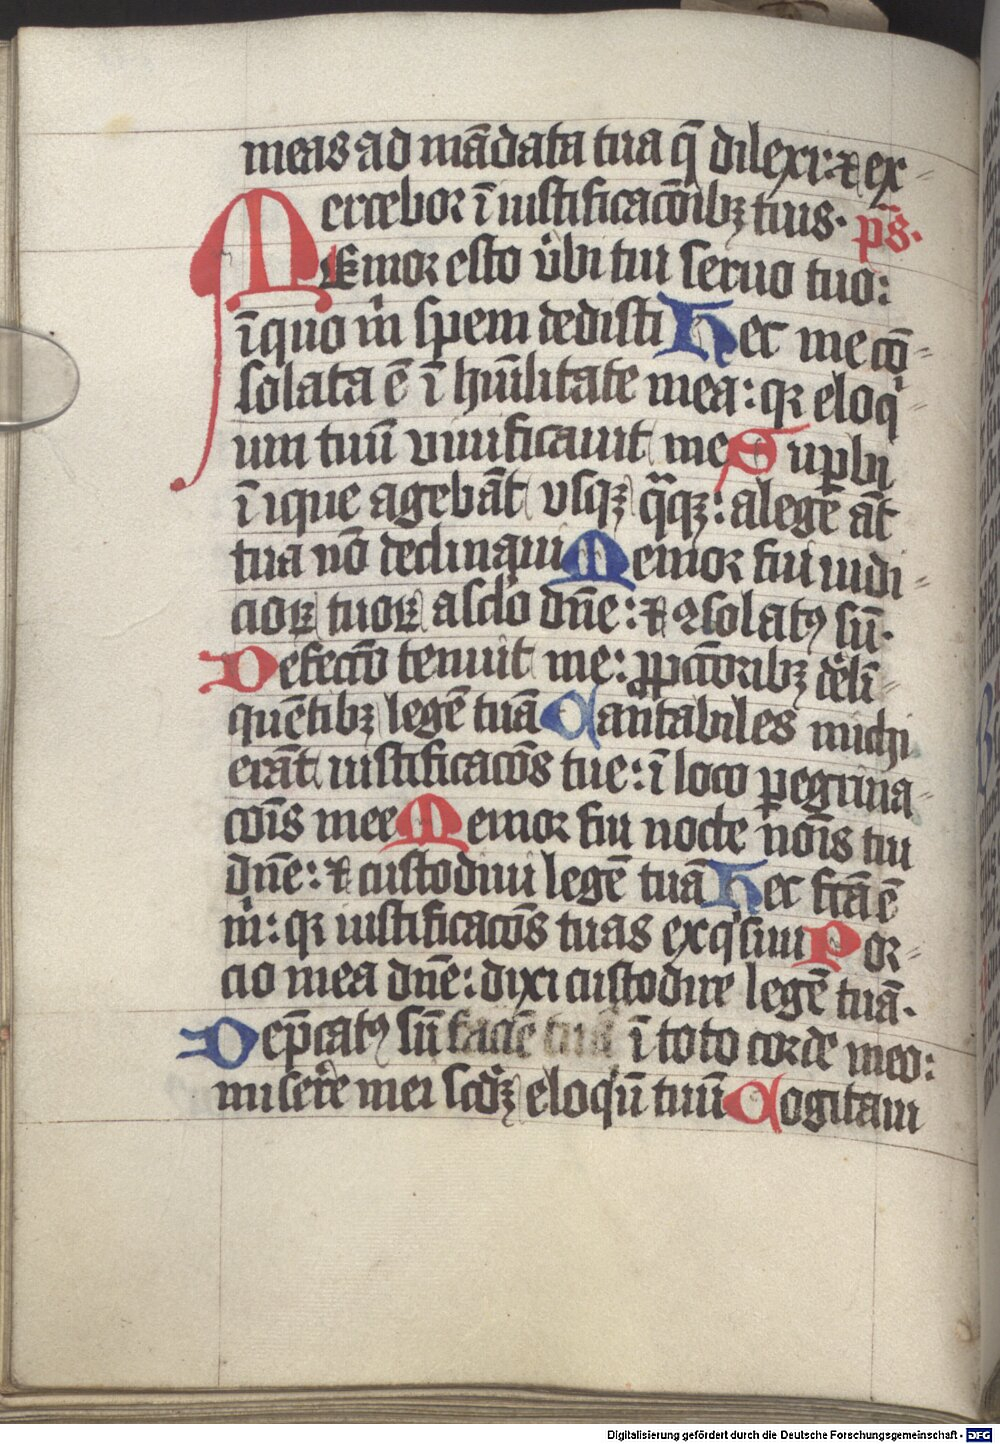 meas ad mādata tua q̄ dilexi: ⁊ ex⸗
ercebor ī iustificacōibꝫ tuis. ps̄.
MEmor esto v̓bi tui seruo tuo:
ī quo m̓ spem dedisti Hec me cō⸗
solata ē ī hūilitate mea: qꝛ eloq̓
um tuū viuificauit me Suꝑbi
īique agebāt vsqꝫ q̄qꝫ: a lege āt
tua nō declinaui Memor fui iudi⸗
cioꝝ tuoꝝ a sclo dn̄e: ⁊ ꝯsolatꝰ sū.
Defectō tenuit me: ꝓ pctōribꝫ de̓lī⸗
quētibꝫ legē tuā Cantabiles michi
erāt iustificacōs tue: ī loco ꝑegrina⸗
cōis mee Memor fui nocte nōis tui
dn̄e: ⁊ custodiui legē tuā Hec fc̄a ē
m̓: qꝛ iustificacōs tuas exq̓siui Por⸗
cio mea dn̄e: dixi custodire legē tuā.
Dep̄catꝰ sū faciē tuā ī toto corde meo:
misere̓ mei scd̄ꝫ eloqū tuū Cogitaui
Digitalisierung gefördert durch die Deutsche Forschungsgemeinschaft - DFG